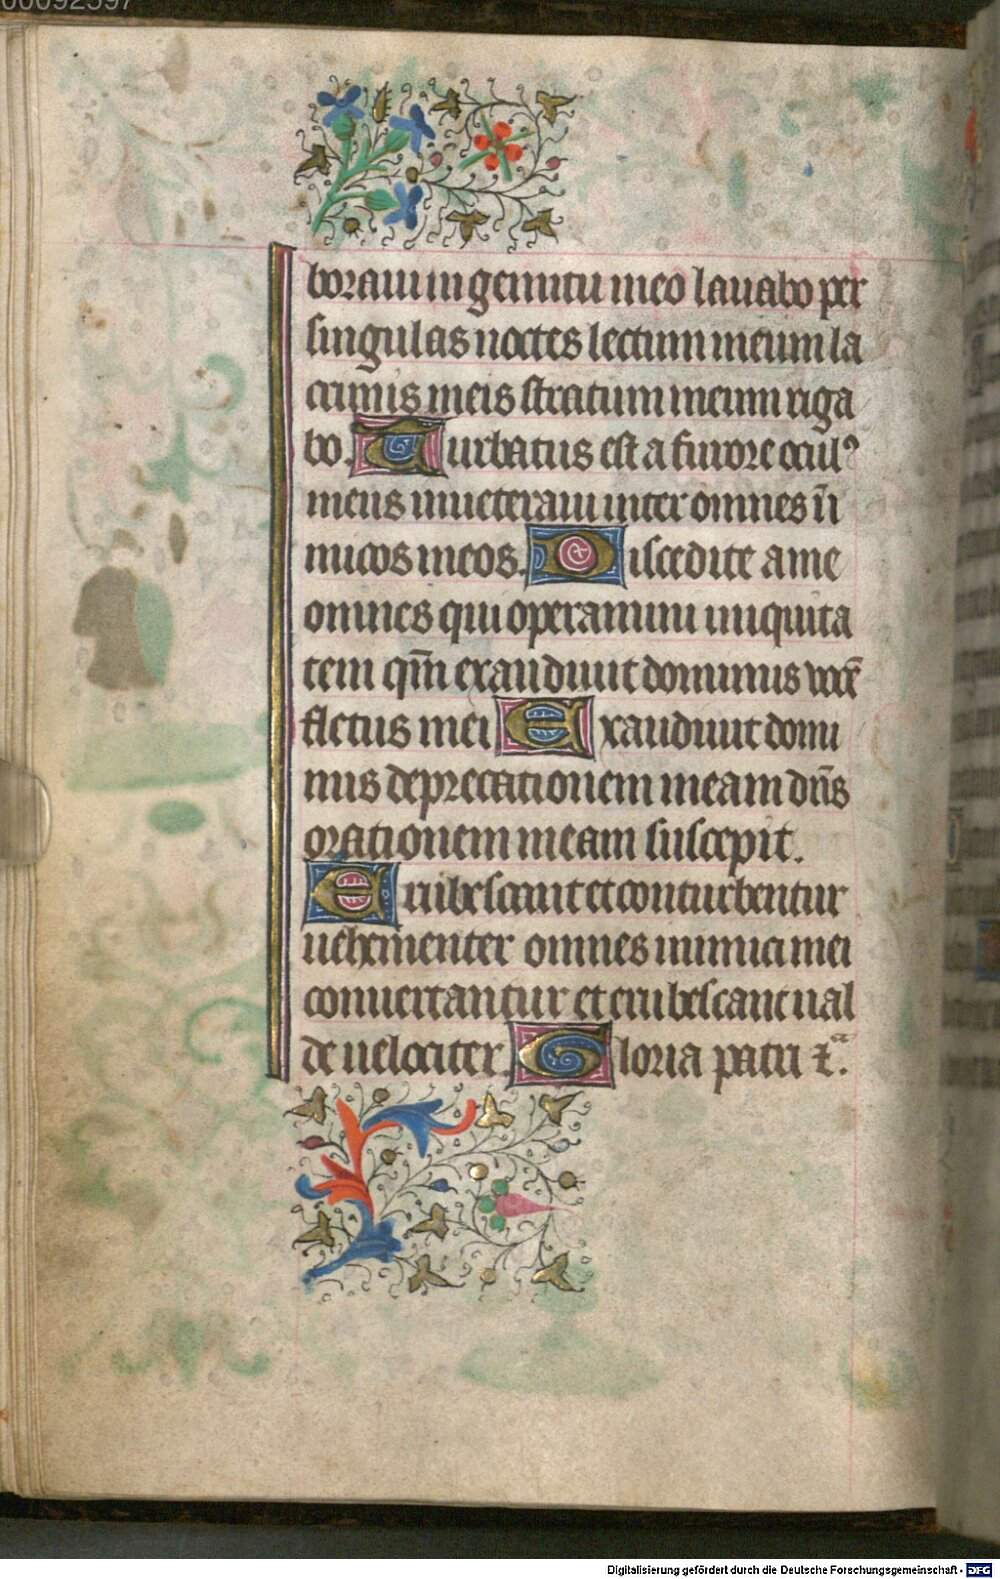 00092597
boraui in gemitu meo lauabo per
singulas noctes lectum meum la
crimis meis stratum meum riga
bo. Turbatus est a furore ocul⁹
meus inueteraui inter omnes ini
micos meos. Discedite a me
omnes qui operamini iniquita
tem qm̄ exaudiuit dominus vocē
fletus mei Exaudiuit domi
nus deprecationem meam dn̄s
orationem meam suscepit.
Erubescant et conturbentur
uehementer omnes inimici mei
conuertantur et erubescant ual
de uelociter. Gloria patri ⁊ᵃ.
Digitalisierung gefördert durch die Deutsche Forschungsgemeinschaft - DFG